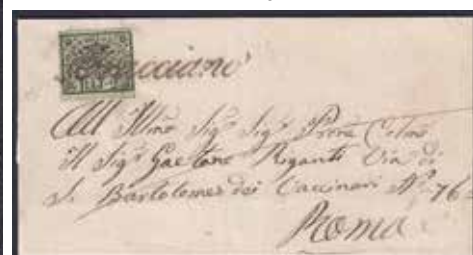 All Illmo Sigr Sigr Prone Colmo
Il Sigr Gaetano Riganti Via di
S. Bartolomeo dei Vaccinari No 76
Roma